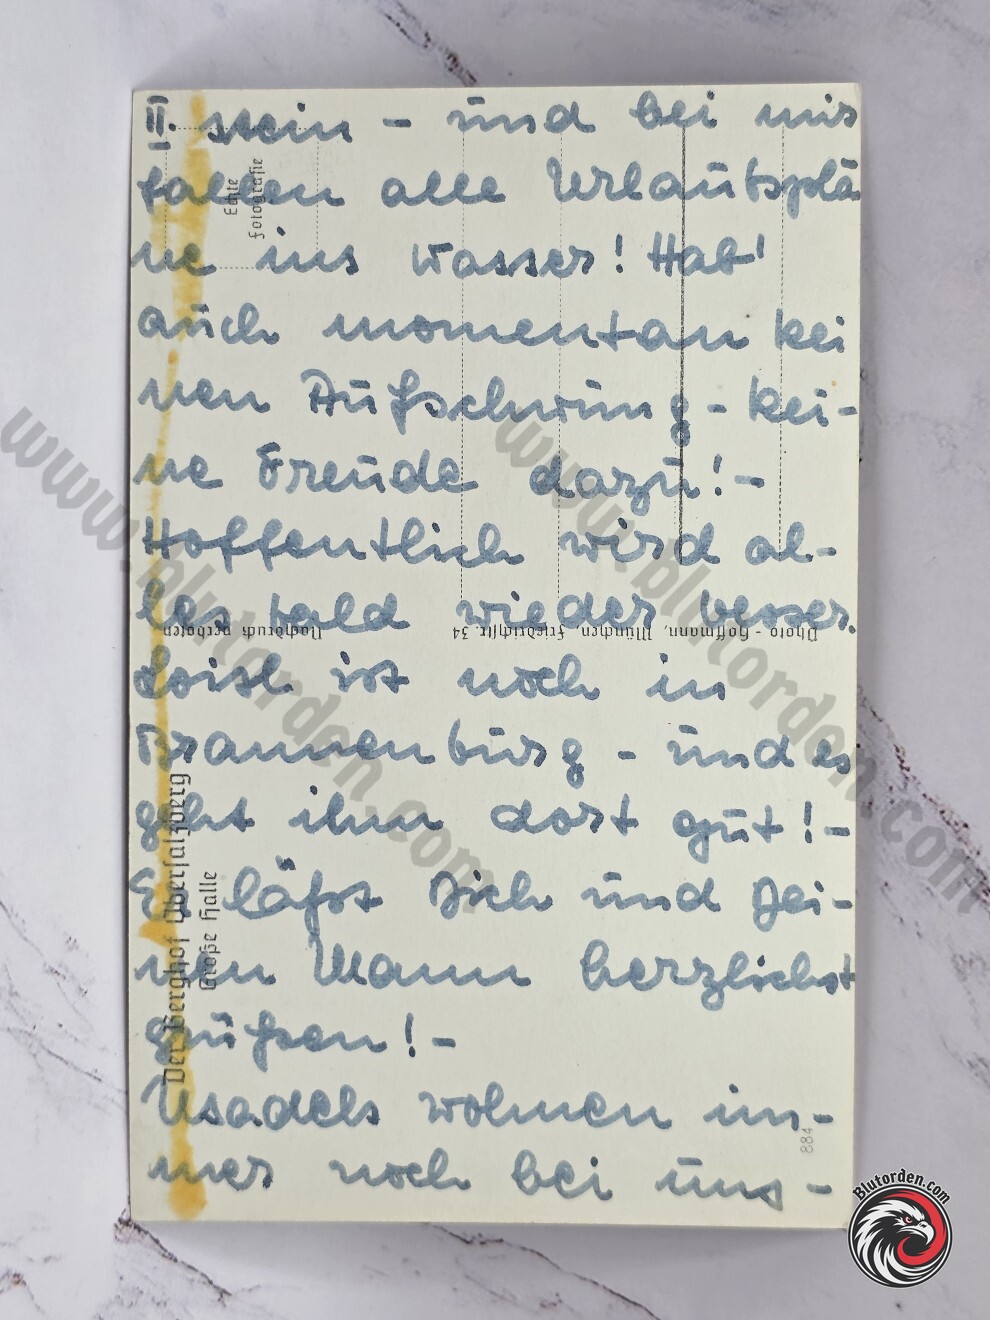 II. stein - und bei mir
fallen alle Urlaubsplä
ne ins Wasser! Hab'
auch momentan kei
nen Aufschwung - kei-
ne Freude dazu! -
Hoffentlich wird al-
les bald wieder besser.
Loisl ist noch in
Brannenburg - und es
geht ihm dort gut! -
Er läßt Dich und Dei-
nen Mann herzlichst
grüßen! -
Usadels wohnen im-
mer noch bei uns -
Echte
Fotografie
Nachdruck verboten
Photo-Hoffmann, München, Friedrichstr. 34
Der Berghof Obersalzberg
Große Halle
884
www.blutorden.com
www.blutorden.com
Blutorden.com